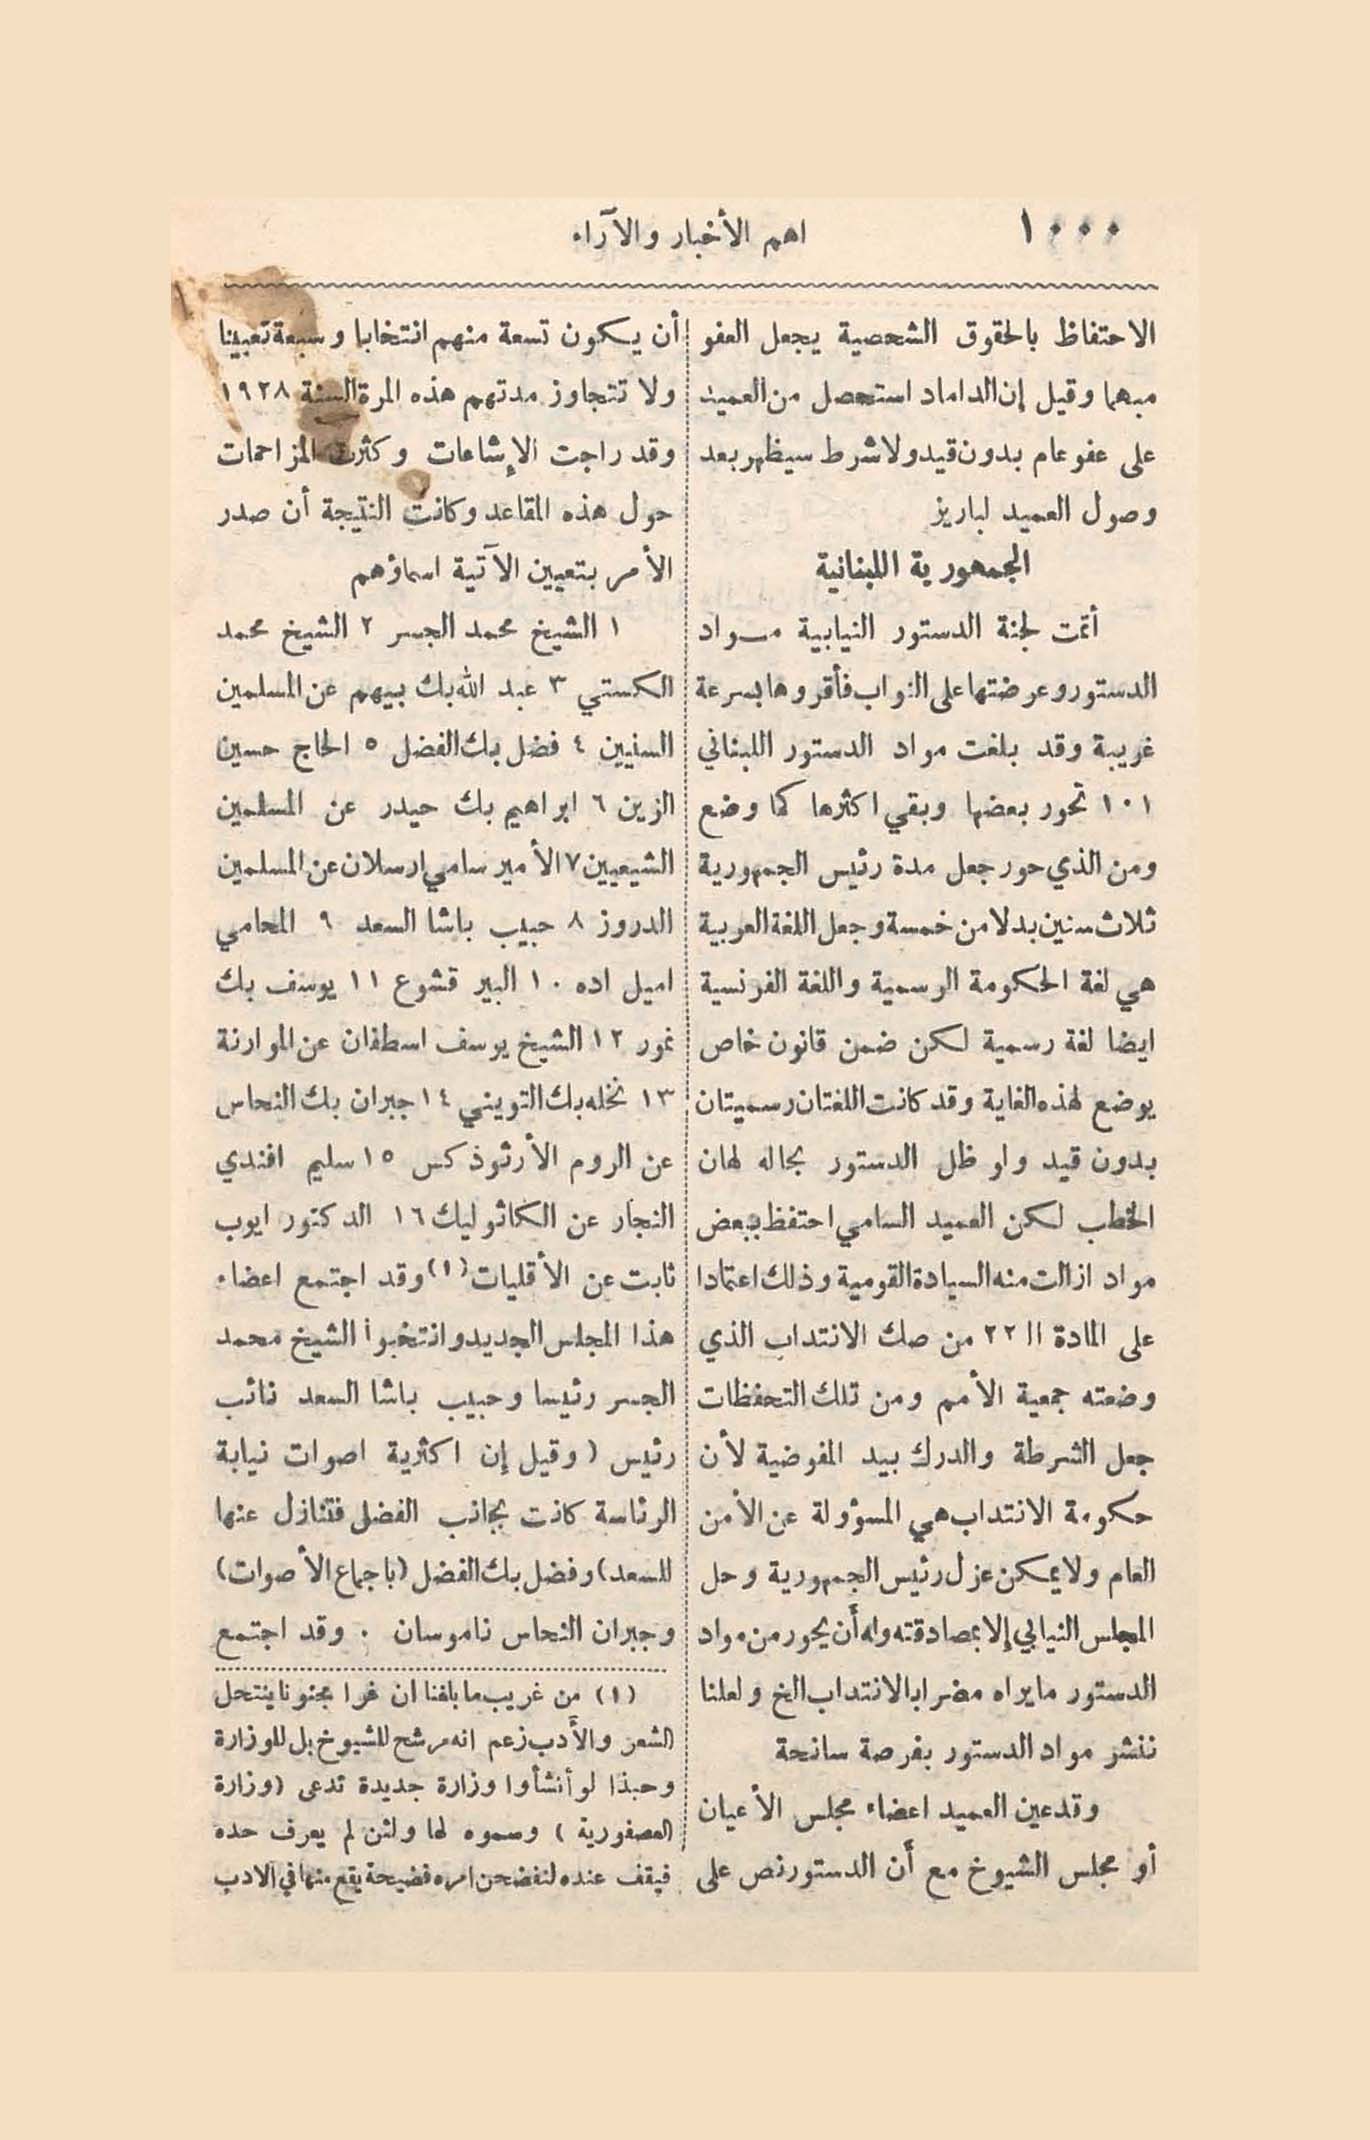 ١٠٠٠
اهم الأخبار والآراء
الاحتفاظ بالحقوق الشخصية يجعل العفو
مبهما وقيل إن الداماد استحصل من العميد
على عفو عام بدون قيد ولا شرط سيظهر بعد
وصول العميد لباريز
الجمهورية اللبنانية
أتمت لجنة الدستور النيابية مواد
الدستور وعرضتها على النواب فأقروها بسرعة
غريبة وقد بلغت مواد الدستور اللبناني
١٠١ تحور بعضها وبقي اكثرها كما وضع
ومن الذي حور جعل مدة رئيس الجمهورية
ثلاث سنين بدلا من خمسة وجعل اللغة العربية
هي لغة الحكومة الرسمية واللغة الفرنسية
ايضا لغة رسمية لكن ضمن قانون خاص
يوضع لهذه الغاية وقد كانت اللغتان رسميتان
بدون قيد ولو ظل الدستور بحاله لهان
الخطب لكن العميد السامي احتفظ ببعض
مواد ازالت منه السيادة القومية وذلك اعتمادا
على المادة الـ ٢٢ من صك الانتداب الذي
وضعته جمعية الأمم ومن تلك التحفظات
جعل الشرطة والدرك بيد المفوضية لأن
حكومة الانتداب هي المسؤولة عن الأمن
العام ولا يمكن عزل رئيس الجمهورية وحل
المجلس النيابي إلا بمصادقته وله أن يحور من مواد
الدستور ما يراه مضرا بالانتداب الخ ولعلنا
ننشر مواد الدستور بفرصة سانحة
وقد عين العميد اعضاء مجلس الأعيان
أو مجلس الشيوخ مع أن الدستور نص على
أن يكون تسعة منهم انتخابا وسبعة تعيينا
ولا تتجاوز مدتهم هذه المرة السنة ١٩٢٨
وقد راجت الإشاعات وكثرت المزاحمات
حول هذه المقاعد وكانت النتيجة أن صدر
الأمر بتعيين الآتية اسماؤهم
١ الشيخ محمد الجسر ٢ الشيخ محمد
الكستي ٣ عبد الله بك بيهم عن المسلمين
السنيين ٤ فضل بك الفضل ٥ الحاج حسين
الزين ٦ ابراهيم بك حيدر عن المسلمين
الشيعيين ٧ الأمير سامي ارسلان عن المسلمين
الدروز ٨ حبيب باشا السعد ٩ المحامي
اميل اده ١٠ البير قشوع ١١ يوسف بك
نمور ١٢ الشيخ يوسف اسطفان عن الموارنة
١٣ نخله بك التويني ١٤ جبران بك النحاس
عن الروم الأرثوذكس ١٥ سليم افندي
النجار عن الكاثوليك ١٦ الدكتور ايوب
ثابت عن الأقليات (١) وقد اجتمع اعضاء
هذا المجلس الجديد وانتخبوا الشيخ محمد
الجسر رئيسا وحبيب باشا السعد نائب
رئيس ( وقيل إن اكثرية اصوات نيابة
الرئاسة كانت بجانب الفضل فتنازل عنها
للسعد) وفضل بك الفضل (باجماع الأصوات)
وجبران النحاس ناموسان . وقد اجتمع
(١) من غريب ما بلغنا ان غرا مجنونا ينتحل
الشعر والأدب زعم انه مرشح للشيوخ بل للوزارة
وحبذا لو أنشأوا وزارة جديدة تدعى (وزارة
العصفورية ) وسموه لها ولئن لم يعرف حده
فيقف عنده لنفضحن امره فضيحة يقع منها في الادب